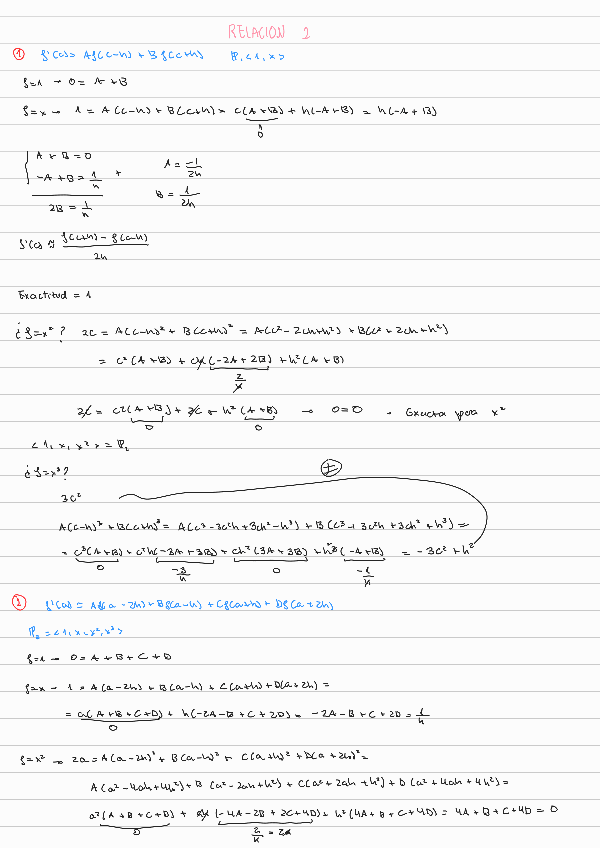 RELACION 2
① f'(c) ≈ Af(c-h) + Bf(c+h) P₁ <1, x>
f=1 → 0 = A + B
f=x → 1 = A(c-h) + B(c+h) = c(A+B) + h(-A+B) = h(-A+B)
0
A + B = 0
-A + B = 1/h +
2B = 1/h
A = -1/2h
B = 1/2h
f'(c) ≈ f(c+h) - f(c-h) / 2h
Exactitud = 1
¿f=x²? 2c = A(c-h)² + B(c+h)² = A(c²-2ch+h²) + B(c²+2ch+h²)
= c²(A+B) + ch(-2A+2B) + h²(A+B)
2/h
2c = c²(A+B) + 2c + h²(A+B) → 0=0 → Exacta para x²
0 0
<1, x, x²> = P₂
¿f=x³?
3c² ≠
A(c-h)³ + B(c+h)³ = A(c³-3c²h+3ch²-h³) + B(c³+3c²h+3ch²+h³) =
= c³(A+B) + c²h(-3A+3B) + ch²(3A+3B) + h³(-A+B) = -3c² + h²
0 -3/h 0 -1/h
② f'(a) ≈ Af(a-2h) + Bf(a-h) + Cf(a+h) + Df(a+2h)
= <1, x, x², x³>
f=1 → 0 = A + B + C + D
f=x → 1 = A(a-2h) + B(a-h) + C(a+h) + D(a+2h) =
= a(A+B+C+D) + h(-2A-B+C+2D) = -2A-B+C+2D = 1/h
0
f=x² → 2a = A(a-2h)² + B(a-h)² + C(a+h)² + D(a+2h)² =
A(a²-4ah+4h²) + B(a²-2ah+h²) + C(a²+2ah+h²) + D(a²+4ah+4h²) =
a²(A+B+C+D) + ah(-4A-2B+2C+4D) + h²(4A+B+C+4D) = 4A+B+C+4D = 0
0 2/h = 2a